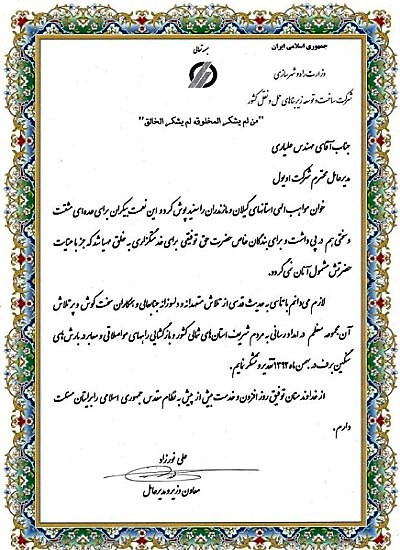 جمهوری اسلامی ایران
بسمه تعالی
وزارت راه و شهرسازی
شرکت ساخت و توسعه زیربناهای حمل و نقل کشور
"من لم یشکر المخلوق لم یشکر الخالق"
جناب آقای مهندس علیاری
مدیرعامل محترم شرکت اویول
خوان مواهب الهی استانهای گیلان و مازندران را سفید پوش کرد و این نعمت بیکران برای عده‌ای مشقت
و سختی هم در پی داشت و برای بندگان خاص حضرت حق توفیقی برای خدمتگزاری به خلق مهیا شد که جز با عنایت
حضرتش مشمول آنان نمی‌گردد.
لازم می‌دانم با تاسی به حدیث قدسی از تلاش متعهدانه و دلسوزانه جنابعالی و همکاران سخت کوش و پر تلاش
آن مجموعه معظم در امداد رسانی به مردم شریف استان های شمالی کشور و بازگشایی راههای مواصلاتی و معابر در بارش های
سنگین برف در بهمن ماه ۱۳۹۲ تقدیر و تشکر نمایم.
از خداوند منان توفیق روز افزون و خدمت بیش از پیش به نظام مقدس جمهوری اسلامی را برایتان مسئلت
دارم.
علی نورزاد
معاون وزیر و مدیرعامل